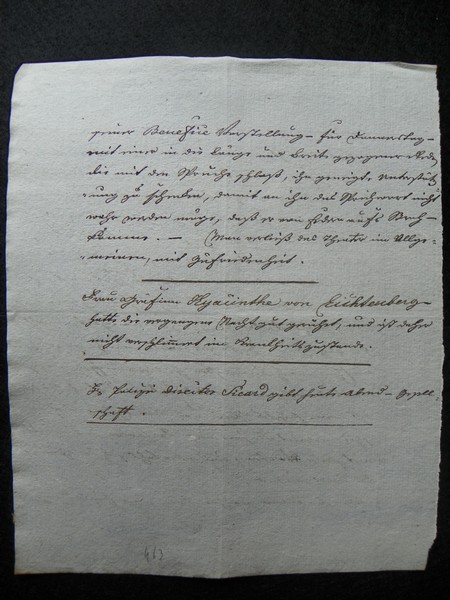 seiner Benefice Vorstellung – für Donnerstag –
mit einer in die Länge und Breite gezogenen Rede
die mit dem Spruche schloß, ihn geneigte Unterstütz-
ung zu schenken, damit an ihn das Sprichwort nicht
wahr werden möge, daß er von Pferden aufs
komme. — Man verließ das Theater im Allge-
meinen, mit Zufriedenheit.
Frau Gräfinn Hyacinthe von Lichtenberg
hatte die vergangene Nacht gut geruhet, und ist daher
nicht verschlimmert im Krankheitszustande.
H Polizei Director Sicard gibt heute Abend – Gesell-
schaft.
463